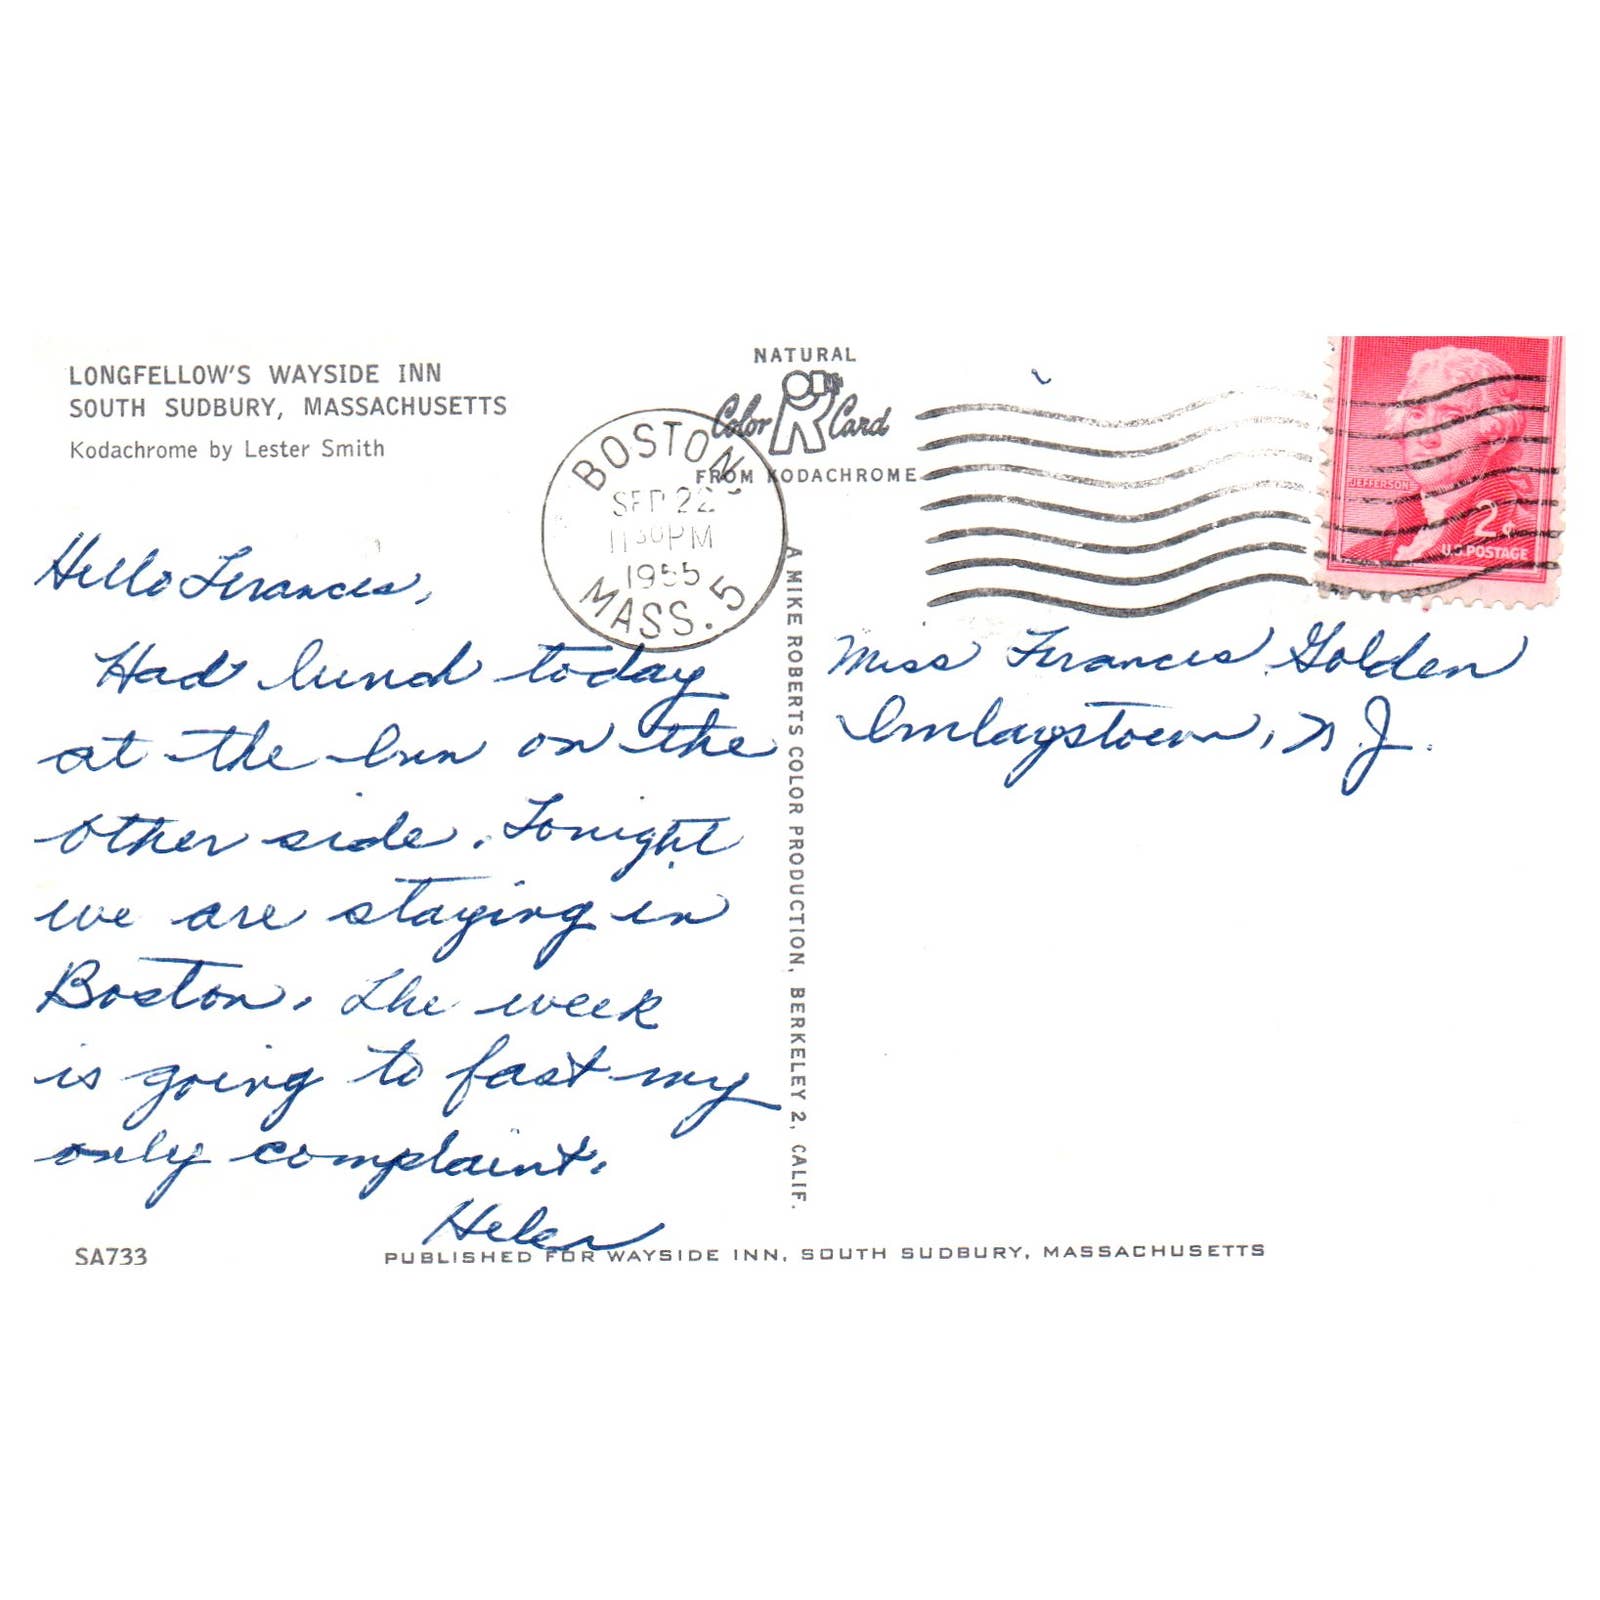 LONGFELLOW'S WAYSIDE INN
SOUTH SUDBURY, MASSACHUSETTS
Kodachrome by Lester Smith
NATURAL
Color R Card
FROM KODACHROME
BOSTON
SEP 22
11 30 PM
1955
MASS. 5
JEFFERSON
2¢
U.S. POSTAGE
Hello Frances,
Had lunch today
at the Inn on the
other side. Tonight
we are staying in
Boston. The week
is going to fast my
only complaint.
Helen
A MIKE ROBERTS COLOR PRODUCTION, BERKELEY 2, CALIF.
Miss Frances Golden
Imlaystown, N.J.
SA733
PUBLISHED FOR WAYSIDE INN, SOUTH SUDBURY, MASSACHUSETTS